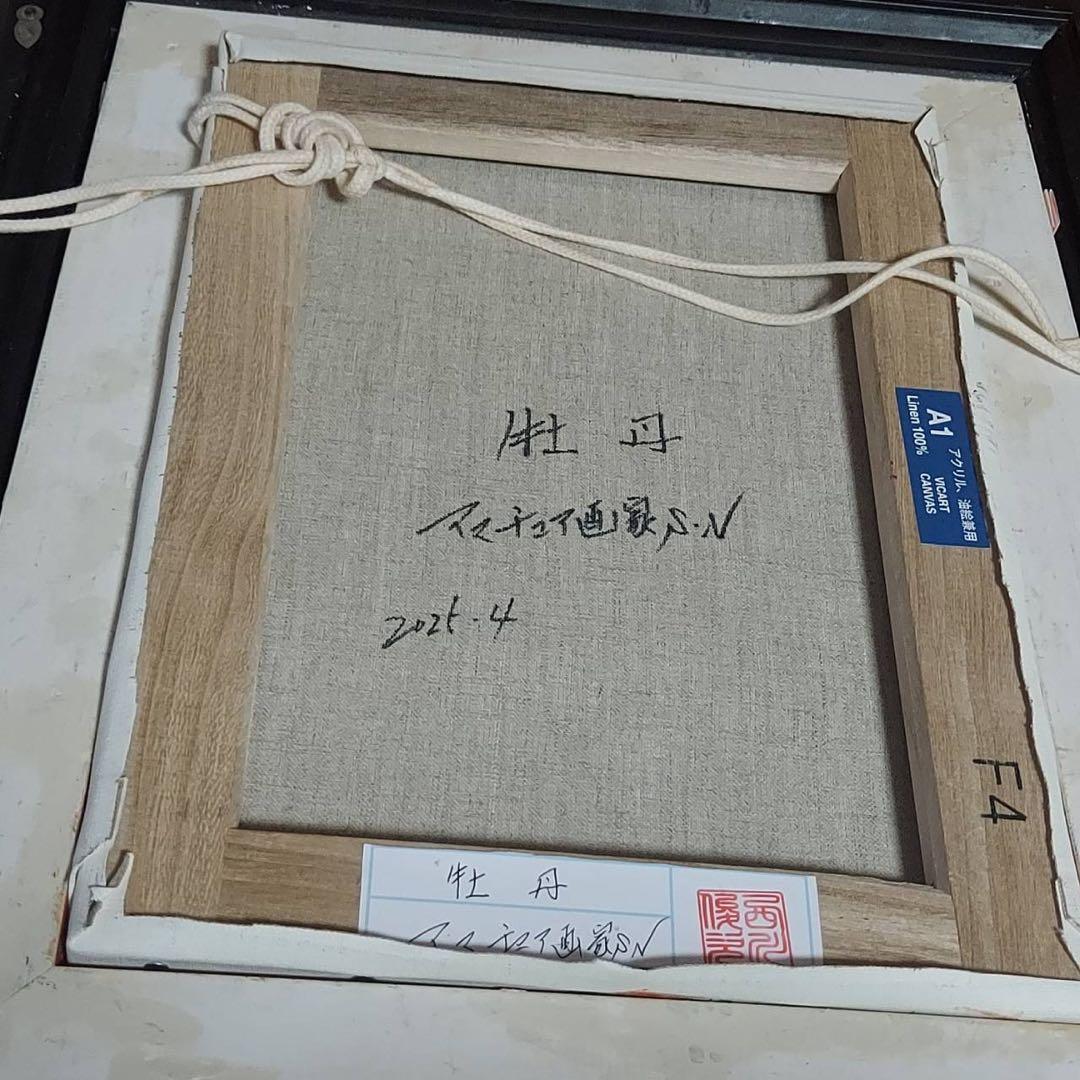 牡丹
アマチュア画家S.N
2025.4
A1 アクリル、油絵兼用
Linen 100% VICART CANVAS
F4
牡丹
アマチュア画家SN